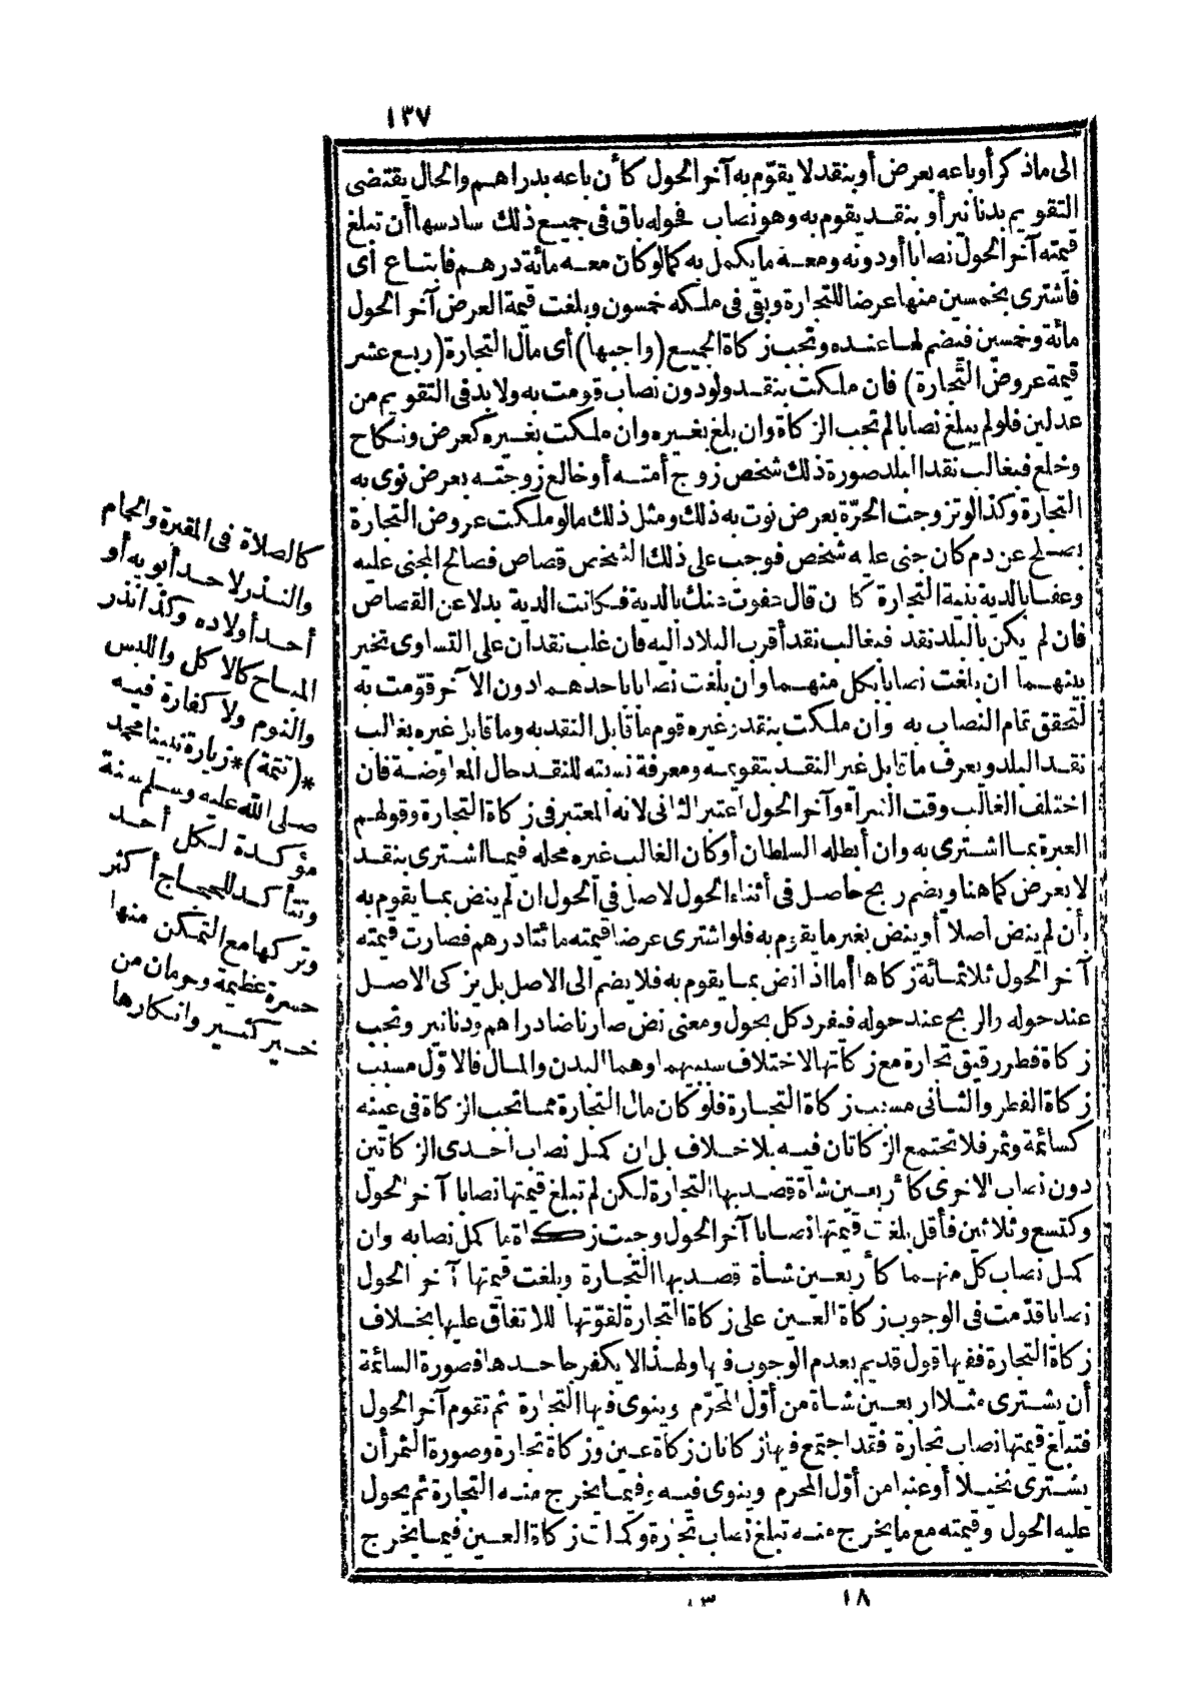 ١٣٧
الى ماذكر أو باعه بعرض أو بنقد لا يقوّم به آخر الحول كأن باعه بدراهم والحال يقتضى
التقويم بدنانير أو بنقد يقوم به وهو نصاب فحوله باق فى جميع ذلك سادسها أن تبلغ
قيمته آخر الحول نصابا أو دونه ومعه ما يكمل به كما لو كان معه مائة درهم فابتاع أى
فاشترى بخمسين منها عرضا للتجارة وبقى فى ملكه خمسون وبلغت قيمة العرض آخر الحول
مائة وخمسين فيضم لما عنده وتجب زكاة الجميع (واجبها) أى مال التجارة (ربع عشر
قيمة عروض التجارة) فان ملكت بنقد ولو دون نصاب قومت به ولا بد فى التقويم من
عدلين فلو لم يبلغ نصابا لم تجب الزكاة وان بلغ بغيره وان ملكت بغيره كعرض ونكاح
وخلع فبغالب نقد البلد صورة ذلك شخص زوج أمته أو خالع زوجته بعرض نوى به
التجارة وكذا لو تزوجت الحرّة بعرض نوت به ذلك ومثل ذلك ما لو ملكت عروض التجارة
بصلح عن دم كان جنى عليه شخص فوجب على ذلك الشخص قصاص فصالح المجنى عليه
وعفا بالدية بنية التجارة كأن قال عفوت عنك بالدية فكانت الدية بدلا عن القصاص
فان لم يكن بالبلد نقد فبغالب نقد أقرب البلاد اليه فان غلب نقدان على التساوى تخير
بينهما ان بلغت نصابا بكل منهما وان بلغت نصابا باحدهما دون الآخر قوّمت به
لتحقق تمام النصاب به وان ملكت بنقد وغيره قوم ما قابل النقد به وما قابل غيره بغالب
نقد البلد ويعرف ما قابل غير النقد بتقويمه ومعرفة نسبته للنقد حال المعاوضة فان
اختلف الغالب وقت الشراء وآخر الحول اعتبر الثانى لانه المعتبر فى زكاة التجارة وقولهم
العبرة بما اشترى به وان أبطله السلطان أو كان الغالب غيره محله فيما اشترى بنقد
لا بعرض كما هنا ويضم ربح حاصل فى أثناء الحول لاصل فى الحول ان لم ينض بما يقوم به
بأن لم ينض أصلا أو ينض بغير ما يقوم به فلو اشترى عرضا قيمته مائتا درهم فصارت قيمته
آخر الحول ثلاثمائة زكاها أما اذا نض بما يقوم به فلا يضم الى الاصل بل يزكى الاصل
عند حوله والربح عند حوله فيفرد كل بحول ومعنى نض صار ناضا دراهم ودنانير وتجب
زكاة فطر رقيق تجارة مع زكاتها لاختلاف سببهما وهما البدن والمال فالاوّل مسبب
زكاة الفطر والثانى مسبب زكاة التجارة فلو كان مال التجارة مما تجب الزكاة فى عينه
كسائمة وثمر فلا تجتمع الزكاتان فيه بلا خلاف بل ان كمل نصاب احدى الزكاتين
دون نصاب الاخرى كأربعين شاة قصد بها التجارة لكن لم تبلغ قيمتها نصابا آخر الحول
وكتسع وثلاثين فأقل بلغت قيمتها نصابا آخر الحول وجبت زكاة ما كمل نصابه وان
كمل نصاب كل منهما كأربعين شاة قصد بها التجارة وبلغت قيمتها آخر الحول
نصابا قدّمت فى الوجوب زكاة العين على زكاة التجارة لقوّتها للاتفاق عليها بخلاف
زكاة التجارة ففيها قول قديم بعدم الوجوب فيها ولهذا لا يكفر جاحدها فصورة السائمة
أن يشترى مثلا أربعين شاة من أوّل المحرّم وينوى فيها التجارة ثم تقوم آخر الحول
فتبلغ قيمتها نصاب تجارة فقد اجتمع فيها زكاتان زكاة عين وزكاة تجارة وصورة الثمر أن
يشترى نخيلا أو عنبا من أوّل المحرم وينوى فيه وفيما يخرج منه التجارة ثم يحول
عليه الحول وقيمته مع ما يخرج منه تبلغ نصاب تجارة وكملت زكاة العين فيما يخرج
١٨
١٣
كالصلاة فى المقبرة والحمام
والنذر لاحد أبويه أو
أحد أولاده وكذا نذر
المباح كالاكل واللبس
والنوم ولا كفارة فيه
*(تتمة)* زيارة نبينا محمد
صلى الله عليه وسلم سنة
مؤكدة لكل أحد
وتتأكد للحجاج أكثر
وتركها مع التمكن منها
حسرة عظيمة وحرمان من
خير كثير وانكارها